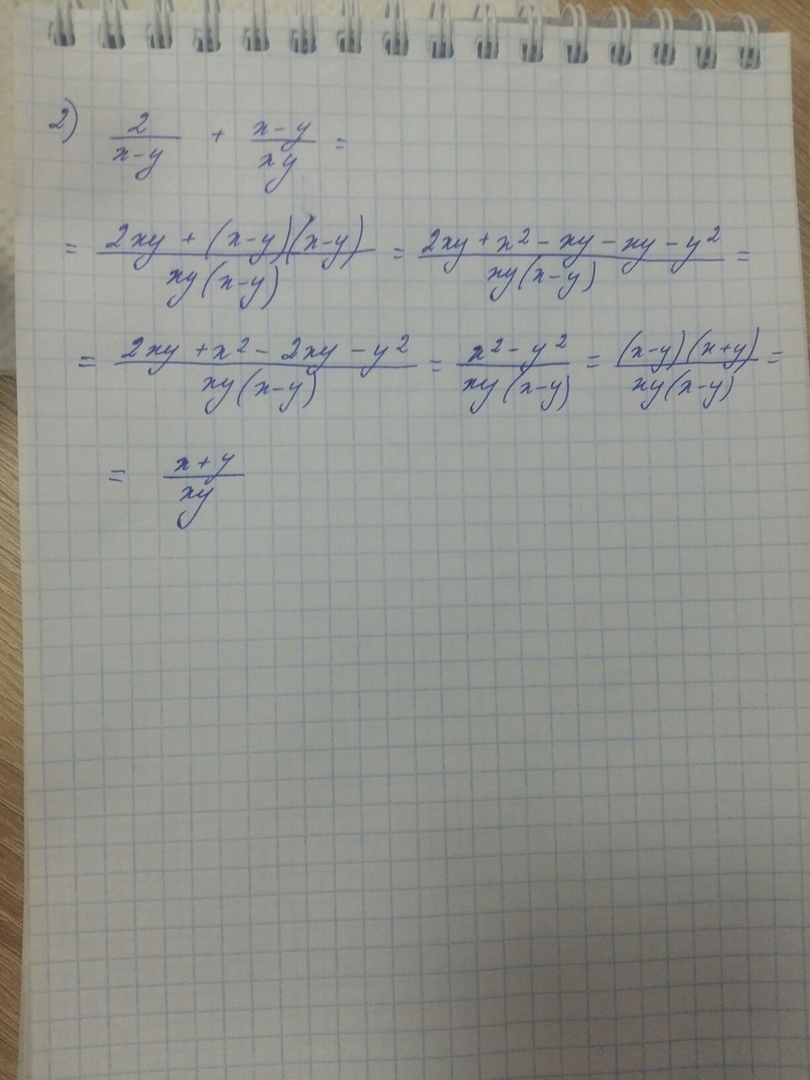 2) 2/(x-y) + (x-y)/(xy) =
= (2xy + (x-y)(x-y))/(xy(x-y)) = (2xy + x² - xy - xy - y²)/(xy(x-y)) =
= (2xy + x² - 2xy - y²)/(xy(x-y)) = (x² - y²)/(xy(x-y)) = ((x-y)(x+y))/(xy(x-y)) =
= (x+y)/(xy)